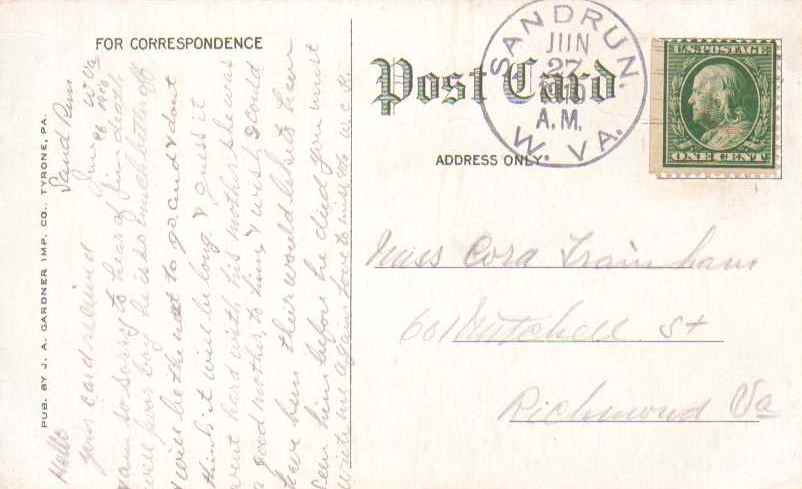 FOR CORRESPONDENCE
Sand Run
W Va
Hello
your card received
I am so sorry to hear of Jim death
well poor boy he is so much better off
I will be the next to go and I dont
think it will be long I guess it
went hard with his mother she was
a good mother to him I wish I could
have him their would like to have
seen him before he died you must
write me again love to
PUB. BY J. A. GARDNER IMP. CO., TYRONE, PA.
Post Card
SANDRUN.
JUN
27
A.M.
W. VA.
U.S. POSTAGE
ONE CENT
ADDRESS ONLY.
Miss Cora Trainham
601 Mitchell St
Richmond Va